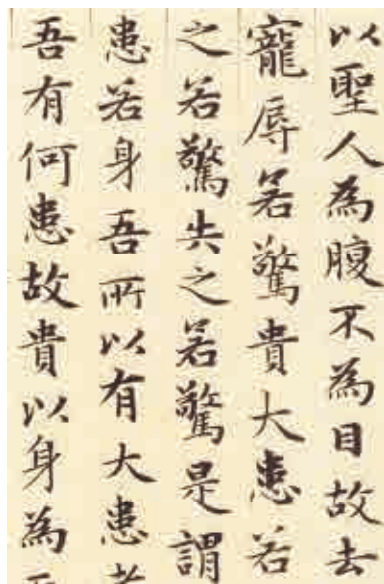 以聖人為腹不為目故去
寵辱若驚貴大患若
之若驚失之若驚是謂
患若身吾所以有大患
吾有何患故貴以身為